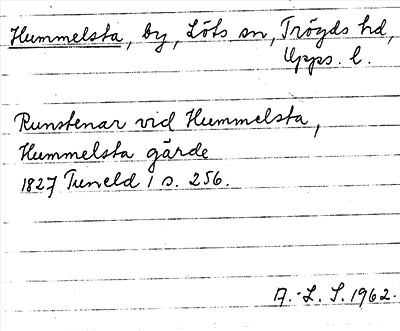 Hummelsta, by, Löts sn, Trögds hd,
Upps. l.
Runstenar vid Hummelsta,
Hummelsta gärde
1827 Tuneld 1 s. 256.
A.-L. S. 1962.